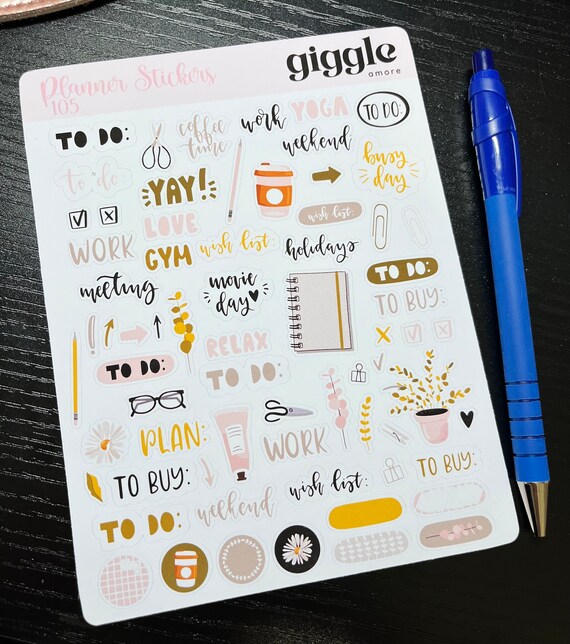 Planner Stickers
105
giggle
amore
TO DO:
coffee
time
work
YOGA
TO DO:
weekend
to do
YAY!
busy
day
LOVE
wish list:
WORK
GYM
wish list:
holidays
TO DO:
meeting
movie
day
TO BUY:
RELAX
TO DO:
TO DO:
PLAN:
WORK
TO BUY:
wish list:
TO BUY:
TO DO:
weekend